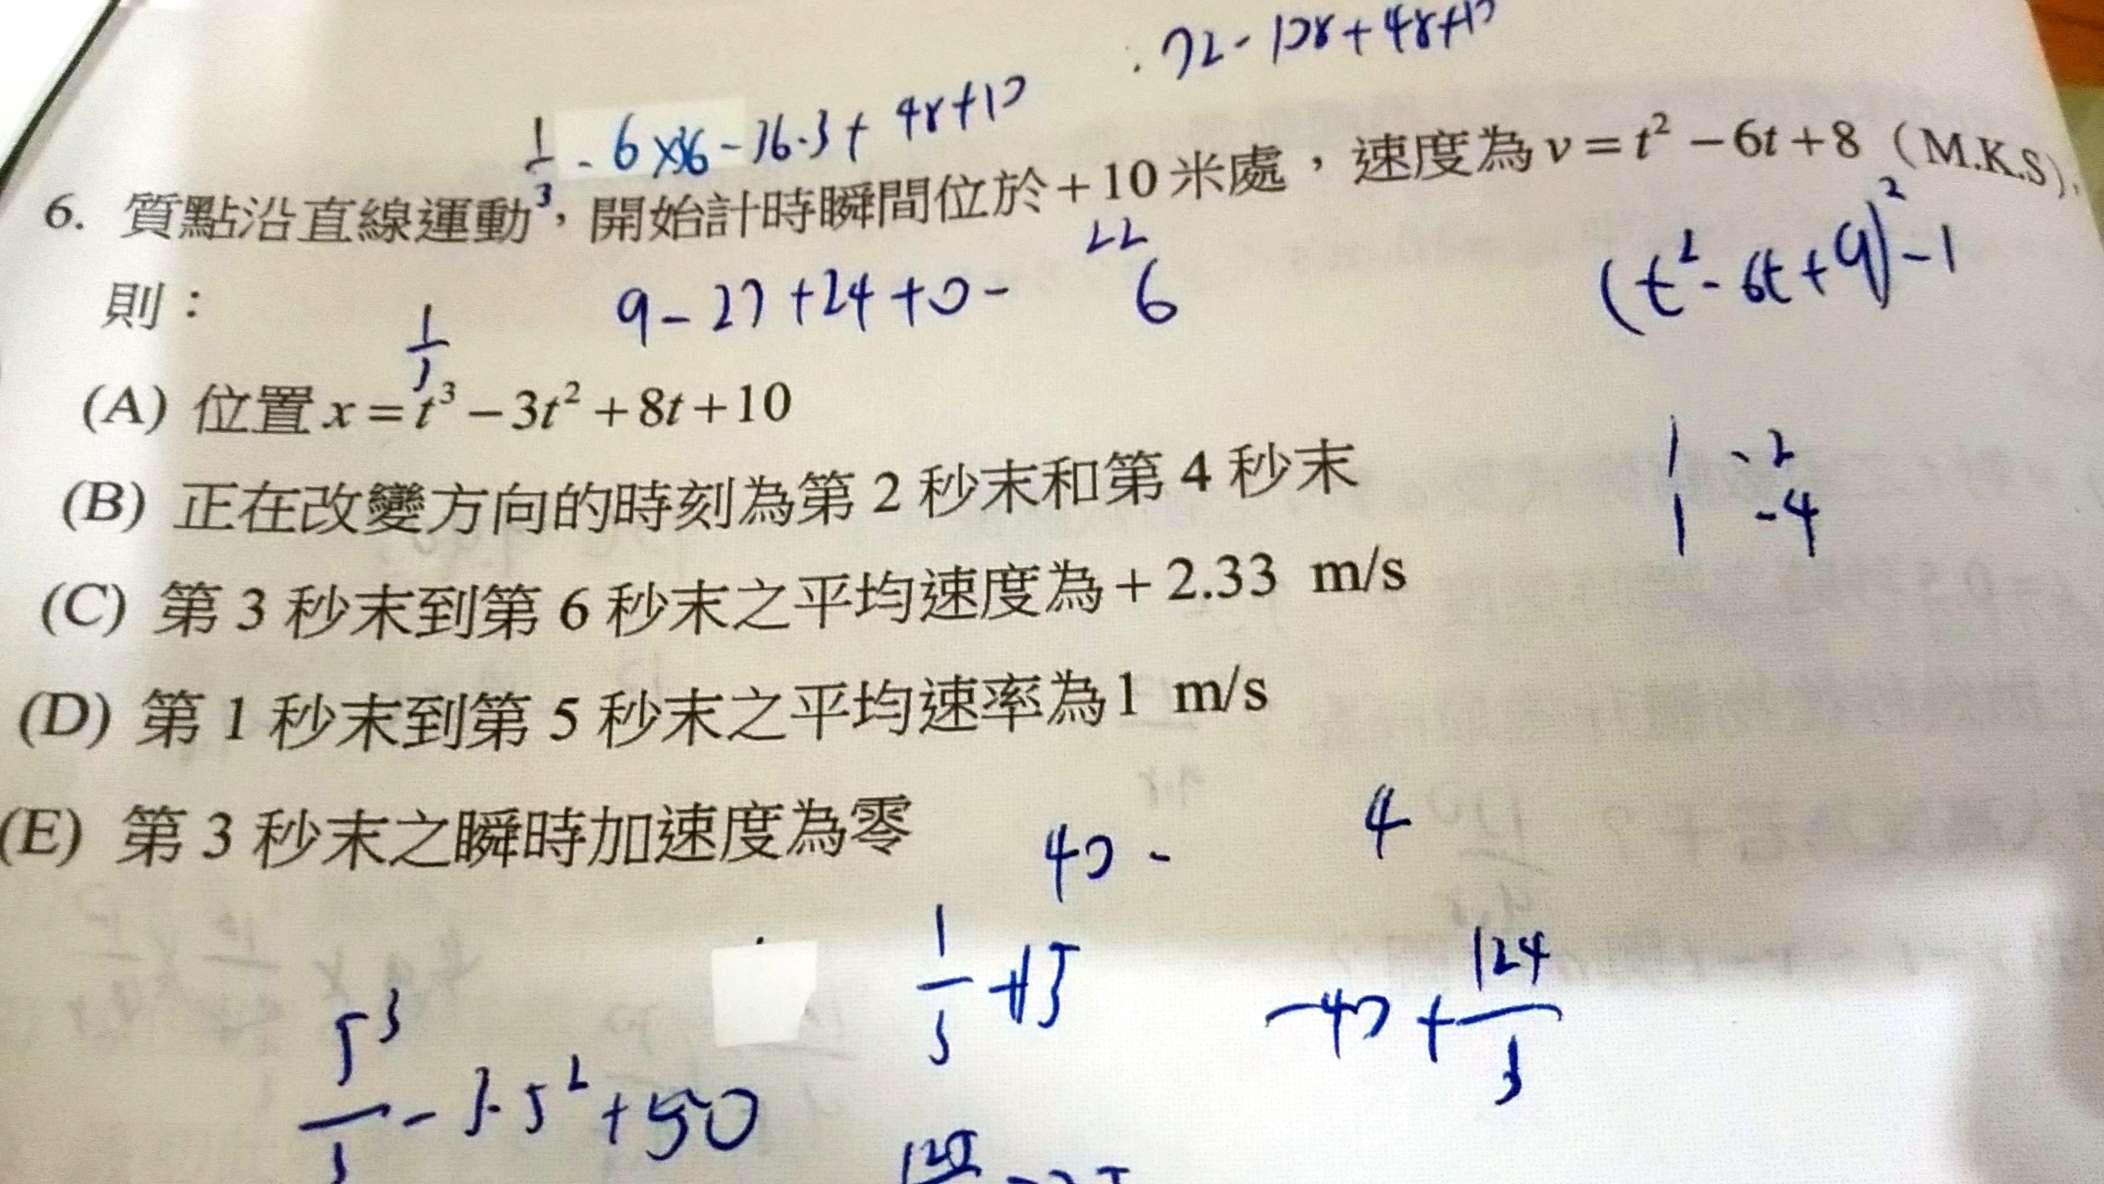 72-128+48+10
1/3 - 6×36-36·3+48+10
6. 質點沿直線運動，開始計時瞬間位於+10米處，速度為v=t²-6t+8（M.K.S），
22
則：
9-27+24+0- 6
(t²-6t+9)²-1
1/3
(A) 位置x=t³-3t²+8t+10
1 -2
(B) 正在改變方向的時刻為第2秒末和第4秒末
1 -4
(C) 第3秒末到第6秒末之平均速度為+2.33 m/s
(D) 第1秒末到第5秒末之平均速率為1 m/s
(E) 第3秒末之瞬時加速度為零
40- 4
1/3+15
-40+124/3
5³/3-3·5²+50
125